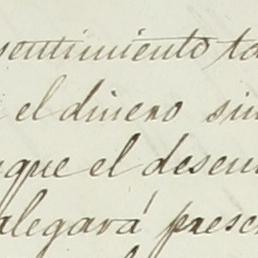 sentimiento ta
el dinero sin
que el descu
alegará prese